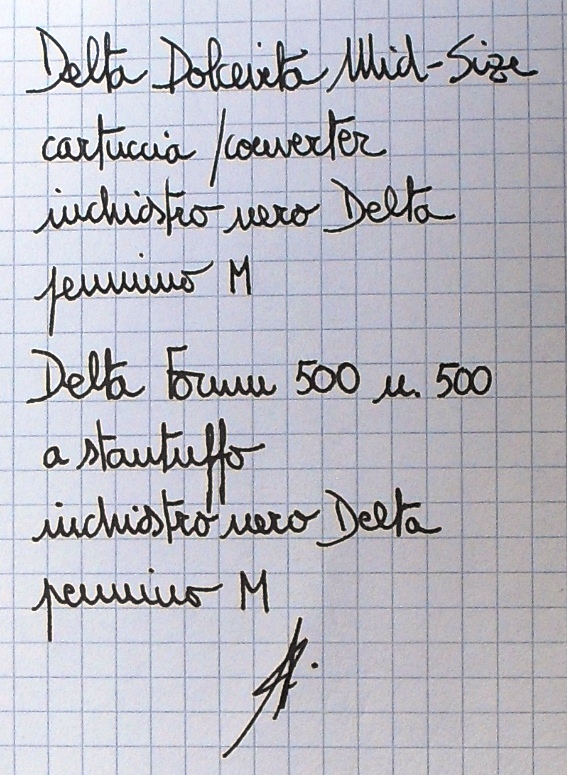 Delta Dolcevita Mid-Size
cartuccia /converter
inchiostro nero Delta
pennino M
Delta Forum 500 n. 500
a stantuffo
inchiostro nero Delta
pennino M